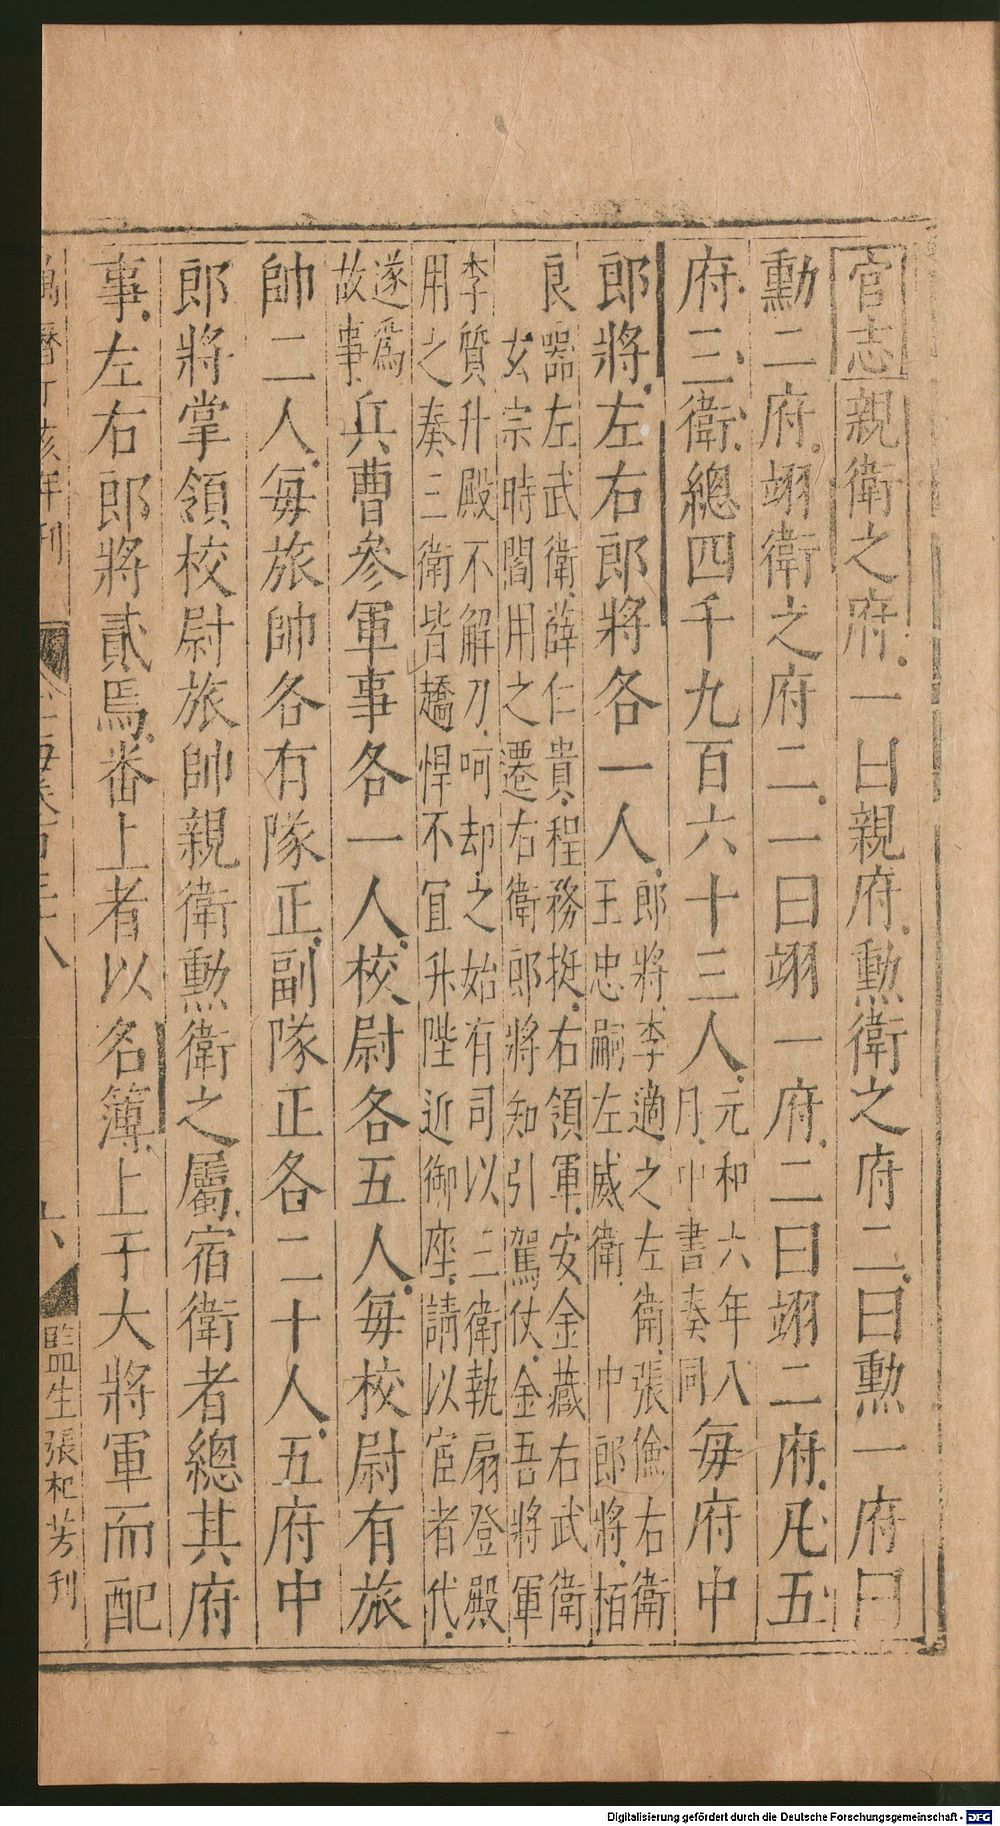 官志親衛之府一曰親府勳衛之府二曰勳一府曰
勳二府翊衛之府二一曰翊一府二曰翊二府凡五
府三衛總四千九百六十三人元和六年八月中書奏同每府中
郎將左右郎將各一人郎將李適之左衛張儉右衛王忠嗣左威衛中郎將栢
良器左武衛薛仁貴程務挺右領軍安金藏右武衛
玄宗時閻用之遷右衛郎將知引駕仗金吾將軍
李質升殿不解刀呵却之始有司以三衛執扇登殿
用之奏三衛皆趫悍不宜升陛近御座請以宦者代
遂爲故事兵曹參軍事各一人校尉各五人每校尉有旅
帥二人每旅帥各有隊正副隊正各二十人五府中
郎將掌領校尉旅帥親衛勳衛之屬宿衛者總其府
事左右郎將貳焉番上者以名簿上于大將軍而配
萬曆丁亥年刊 玉海卷百三十八 十六 監生張杞芳刊
Digitalisierung gefördert durch die Deutsche Forschungsgemeinschaft - DFG